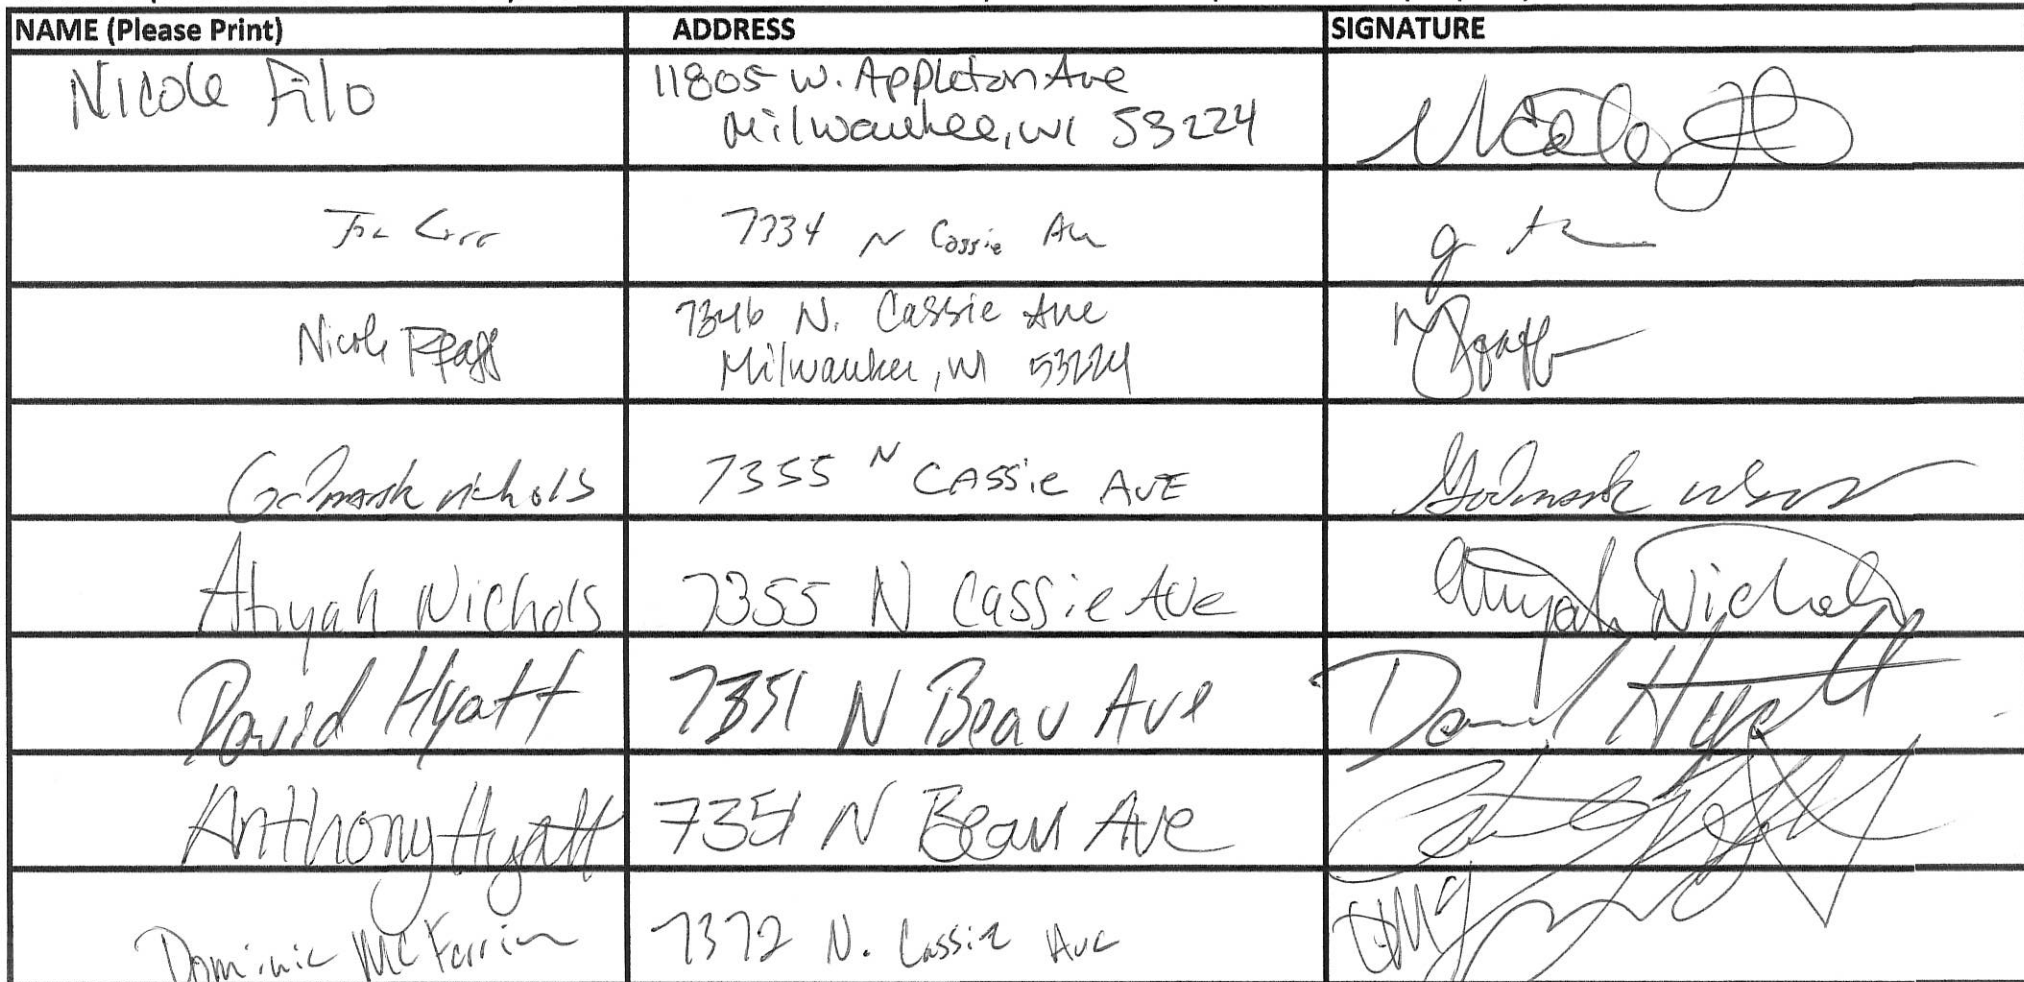 NAME (Please Print) ADDRESS SIGNATURE
Nicole Filo 11805 W. Appleton Ave Nicole Filo
Milwaukee, WI 53224
Joe 7334 N Cassie Ave
Nicole Pfaff 7346 N. Cassie Ave N Pfaff
Milwaukee, WI 53224
Godmark nichols 7355 N CASSie AVE Godmark
Atiyah Nichols 7355 N Cassie Ave Atiyah Nichols
David Hyatt 7351 N Beau Ave David Hyatt
Anthony Hyatt 7351 N Beau Ave
Dominic McFerrin 7372 N. Cassie Ave DMc